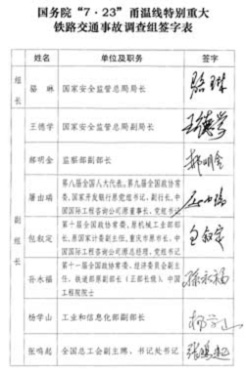 国务院“7·23”甬温线特别重大
铁路交通事故调查组签字表
姓名 单位及职务 签字
组长
骆琳 国家安全监管总局局长 骆琳
副组长
王德学 国家安全监管总局副局长 王德学
郝明金 监察部副部长 郝明金
第八届全国人大代表,第九届全国政协常
屠由瑞 委,国家开发银行原党组书记、副行长,中
国国际工程咨询公司原董事长、党组书记
第十届全国政协常委,原机械工业部部
包叙定 长,原国家计委副主任,重庆市原市长,中
国国际工程咨询公司原总经理、党组书记
第十一届全国政协常委、经济委员会副主
孙永福 任,铁道部原副部长(正部长级),中国
工程院院士
杨学山 工业和信息化部副部长
张鸣起 全国总工会副主席、书记处书记